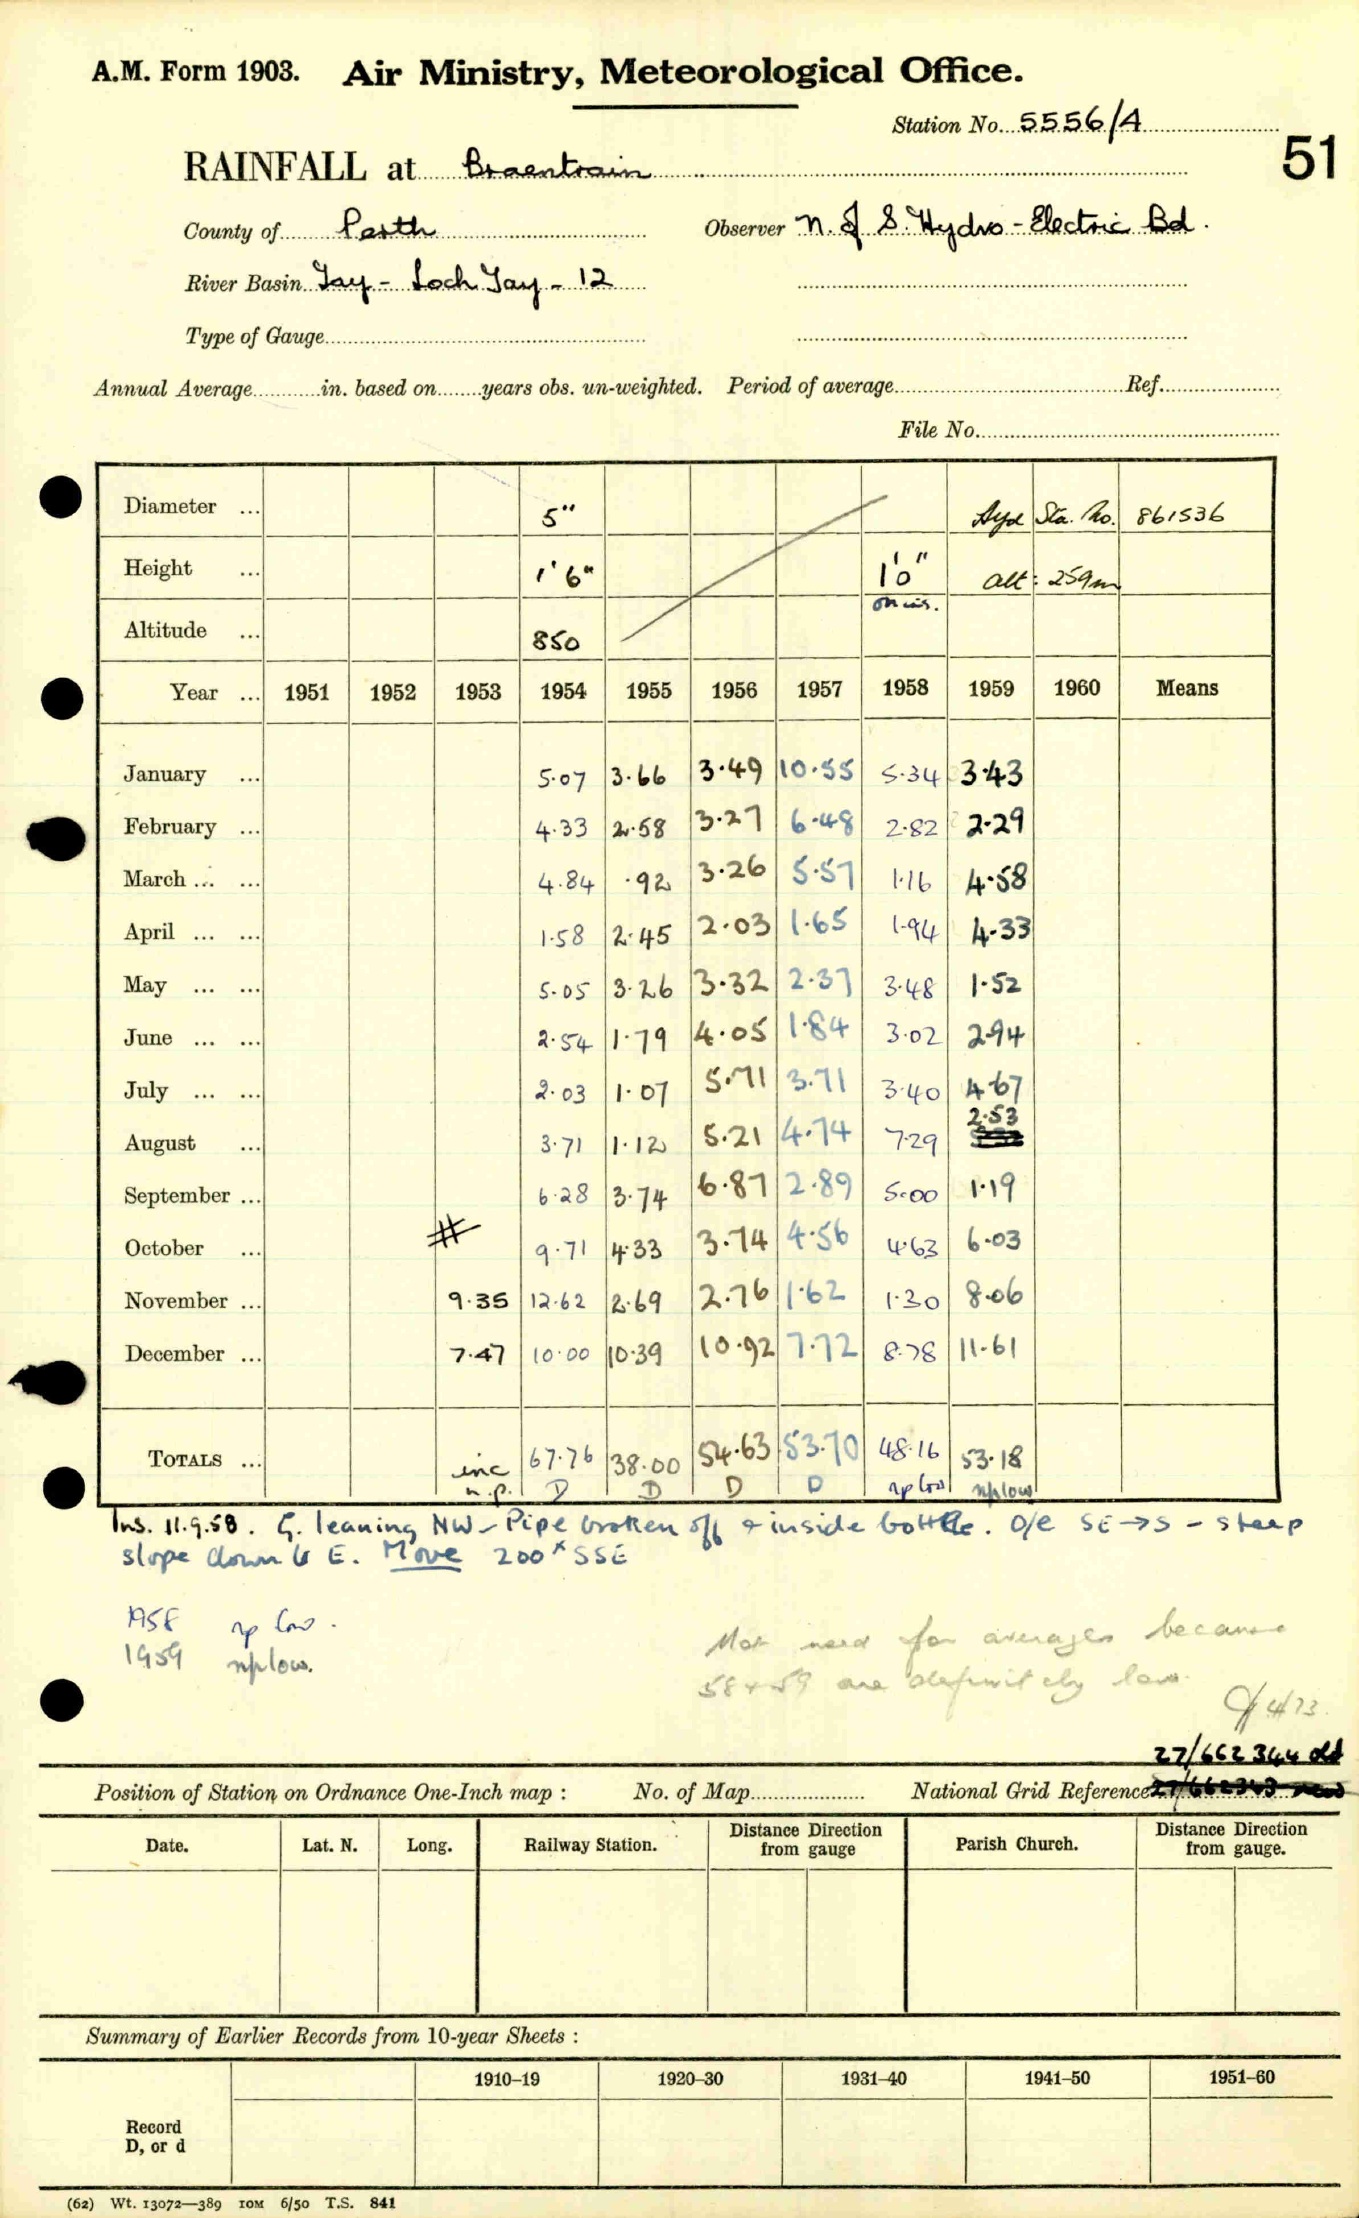 A.M. Form 1903. Air Ministry, Meteorological Office.
Station No. 5556/A
51
RAINFALL at Braentrain
County of Perth Observer N. of S. Hydro-Electric Bd.
River Basin Tay - Loch Tay - 12
Type of Gauge
Annual Average in. based on years obs. un-weighted. Period of average Ref.
File No.
Diameter ... 5" Hyd Sta. No. 861536
Height ... 1'6" 1'0" alt: 259m
on ins.
Altitude ... 850
Year ... 1951 1952 1953 1954 1955 1956 1957 1958 1959 1960 Means
January ... 5.07 3.66 3.49 10.55 5.34 3.43
February ... 4.33 2.58 3.27 6.48 2.82 2.29
March ... ... 4.84 .92 3.26 5.57 1.16 4.58
April ... ... 1.58 2.45 2.03 1.65 1.94 4.33
May ... ... 5.05 3.26 3.32 2.37 3.48 1.52
June ... ... 2.54 1.79 4.05 1.84 3.02 2.94
July ... ... 2.03 1.07 5.71 3.71 3.40 4.67
August ... 3.71 1.12 5.21 4.74 7.29 2.53
September ... 6.28 3.74 6.87 2.89 5.00 1.19
October ... 9.71 4.33 3.74 4.56 4.63 6.03
November ... 9.35 12.62 2.69 2.76 1.62 1.30 8.06
December ... 7.47 10.00 10.39 10.92 7.72 8.78 11.61
TOTALS ... inc 67.76 38.00 54.63 53.70 48.16 53.18
n.p. D D D D np low np low
Ins. 11.9.58. G. leaning NW - Pipe broken off & inside bottle. O/e SE→S - steep
slope down to E. Move 200x SSE
1958 np low.
1959 np low.
Not used for averages because
58 + 59 are definitely low.
4/73
27/662344 old
Position of Station on Ordnance One-Inch map : No. of Map National Grid Reference 27/662343 new
Date. Lat. N. Long. Railway Station. Distance from gauge Direction Parish Church. Distance from gauge. Direction
Summary of Earlier Records from 10-year Sheets :
1910–19 1920–30 1931–40 1941–50 1951–60
Record
D, or d
(62) Wt. 13072—389 10M 6/50 T.S. 841